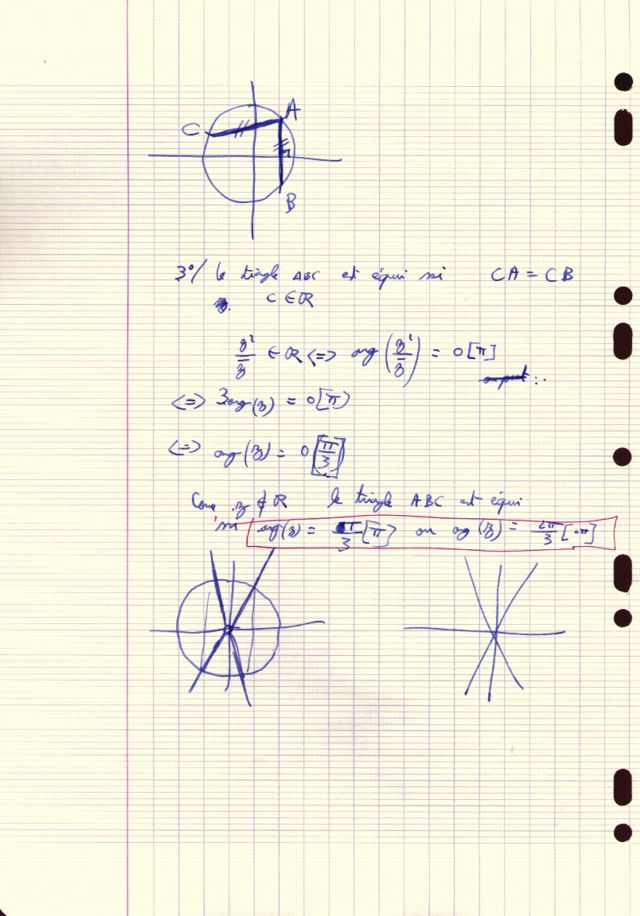 C
A
B
3°/ le triangle ABC est équi ssi CA = CB
C ∈ ℝ
z²/z̄ ∈ ℝ <=> arg(z²/z̄) = 0[π]
<=> 3arg(z) = 0[π]
<=> arg(z) = 0[π/3]
Comme z ∉ ℝ le triangle ABC est équi
ssi arg(z) = π/3 [π] ou arg(z) = 2π/3 [π]